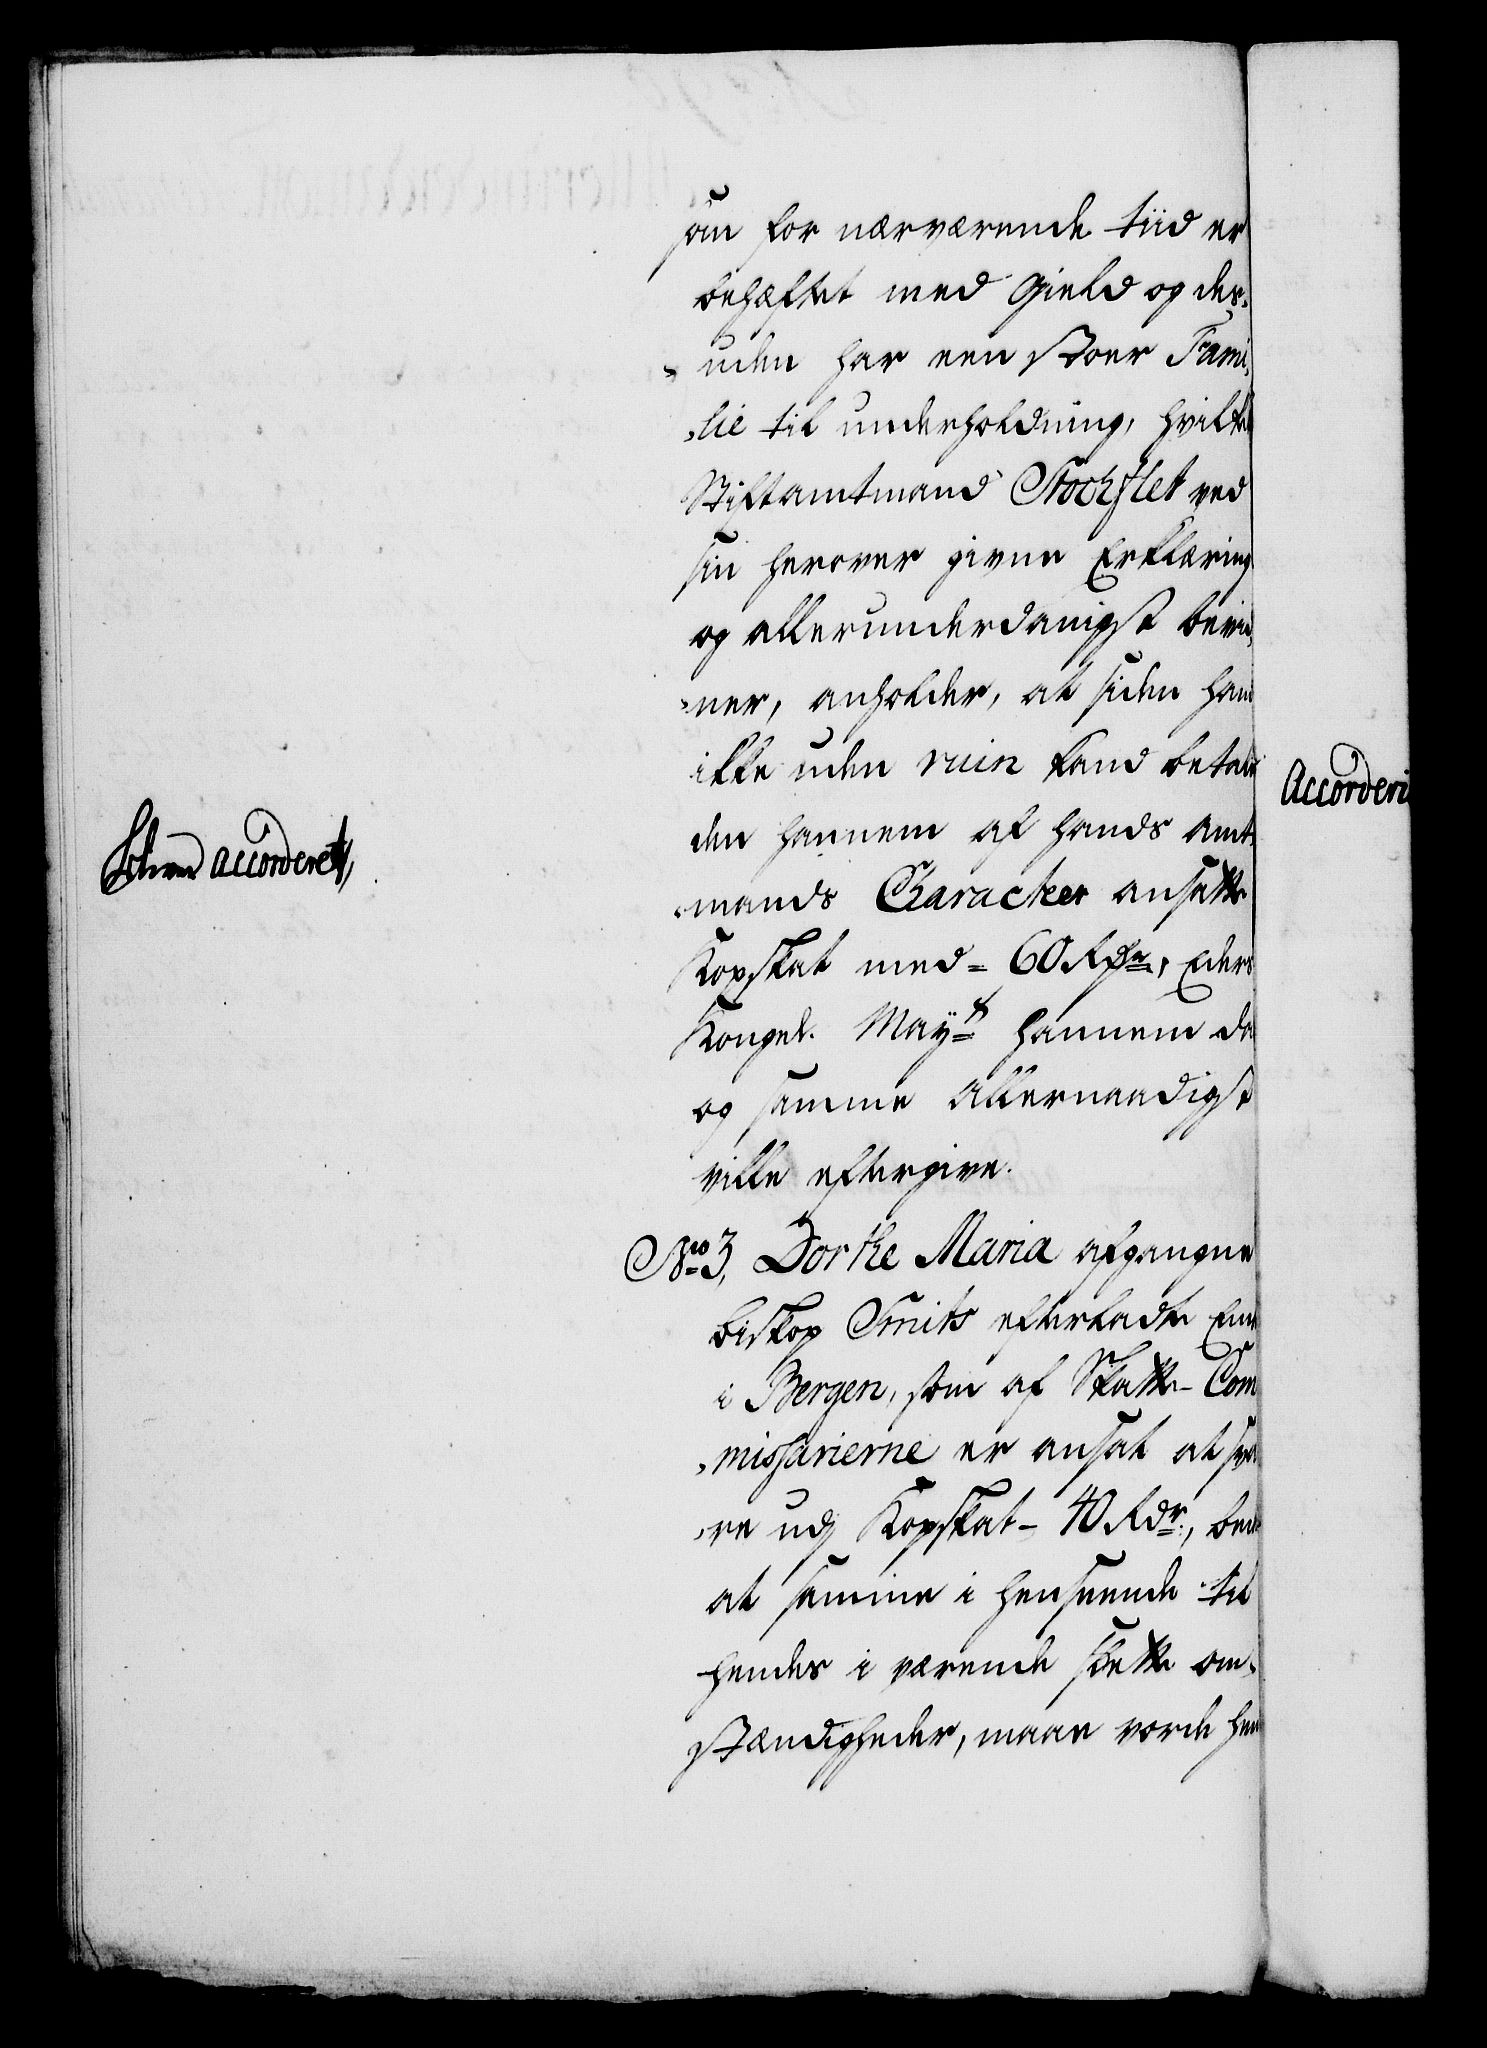 som for nærværende tiid er
behæftet med Gield og des¬
uden har een stoer Fami¬
lie til underholdning, hvilket
Stiftamtmand Stochflet ved
sin herover givne Erklæring
og allerunderdanigst bevid¬
ner, anholder, at siden hand
ikke uden ruin kand betale
den hannem af hands Amt¬
mands Character ansatte
Kopskat med = 60 Rdr, Eders
Kongel. Mayt hannem da
og samme allernaadigst
ville eftergive.
No 3, Dorthe Maria afgangne
biskop Smits efterladte Enke
i Bergen, som af Skatte-Com
missarierne er ansat at sva¬
re udj Kopskat - 40 Rdr., beder
at samme i henseende til
hendes i værende slette om¬
stændigheder, maae vorde hende
accorderet,
Accorderi